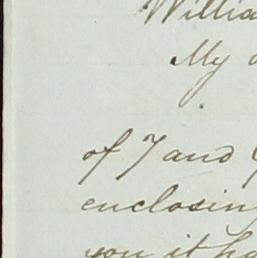 Willia
My
of 7 and
enclosin
you it ha